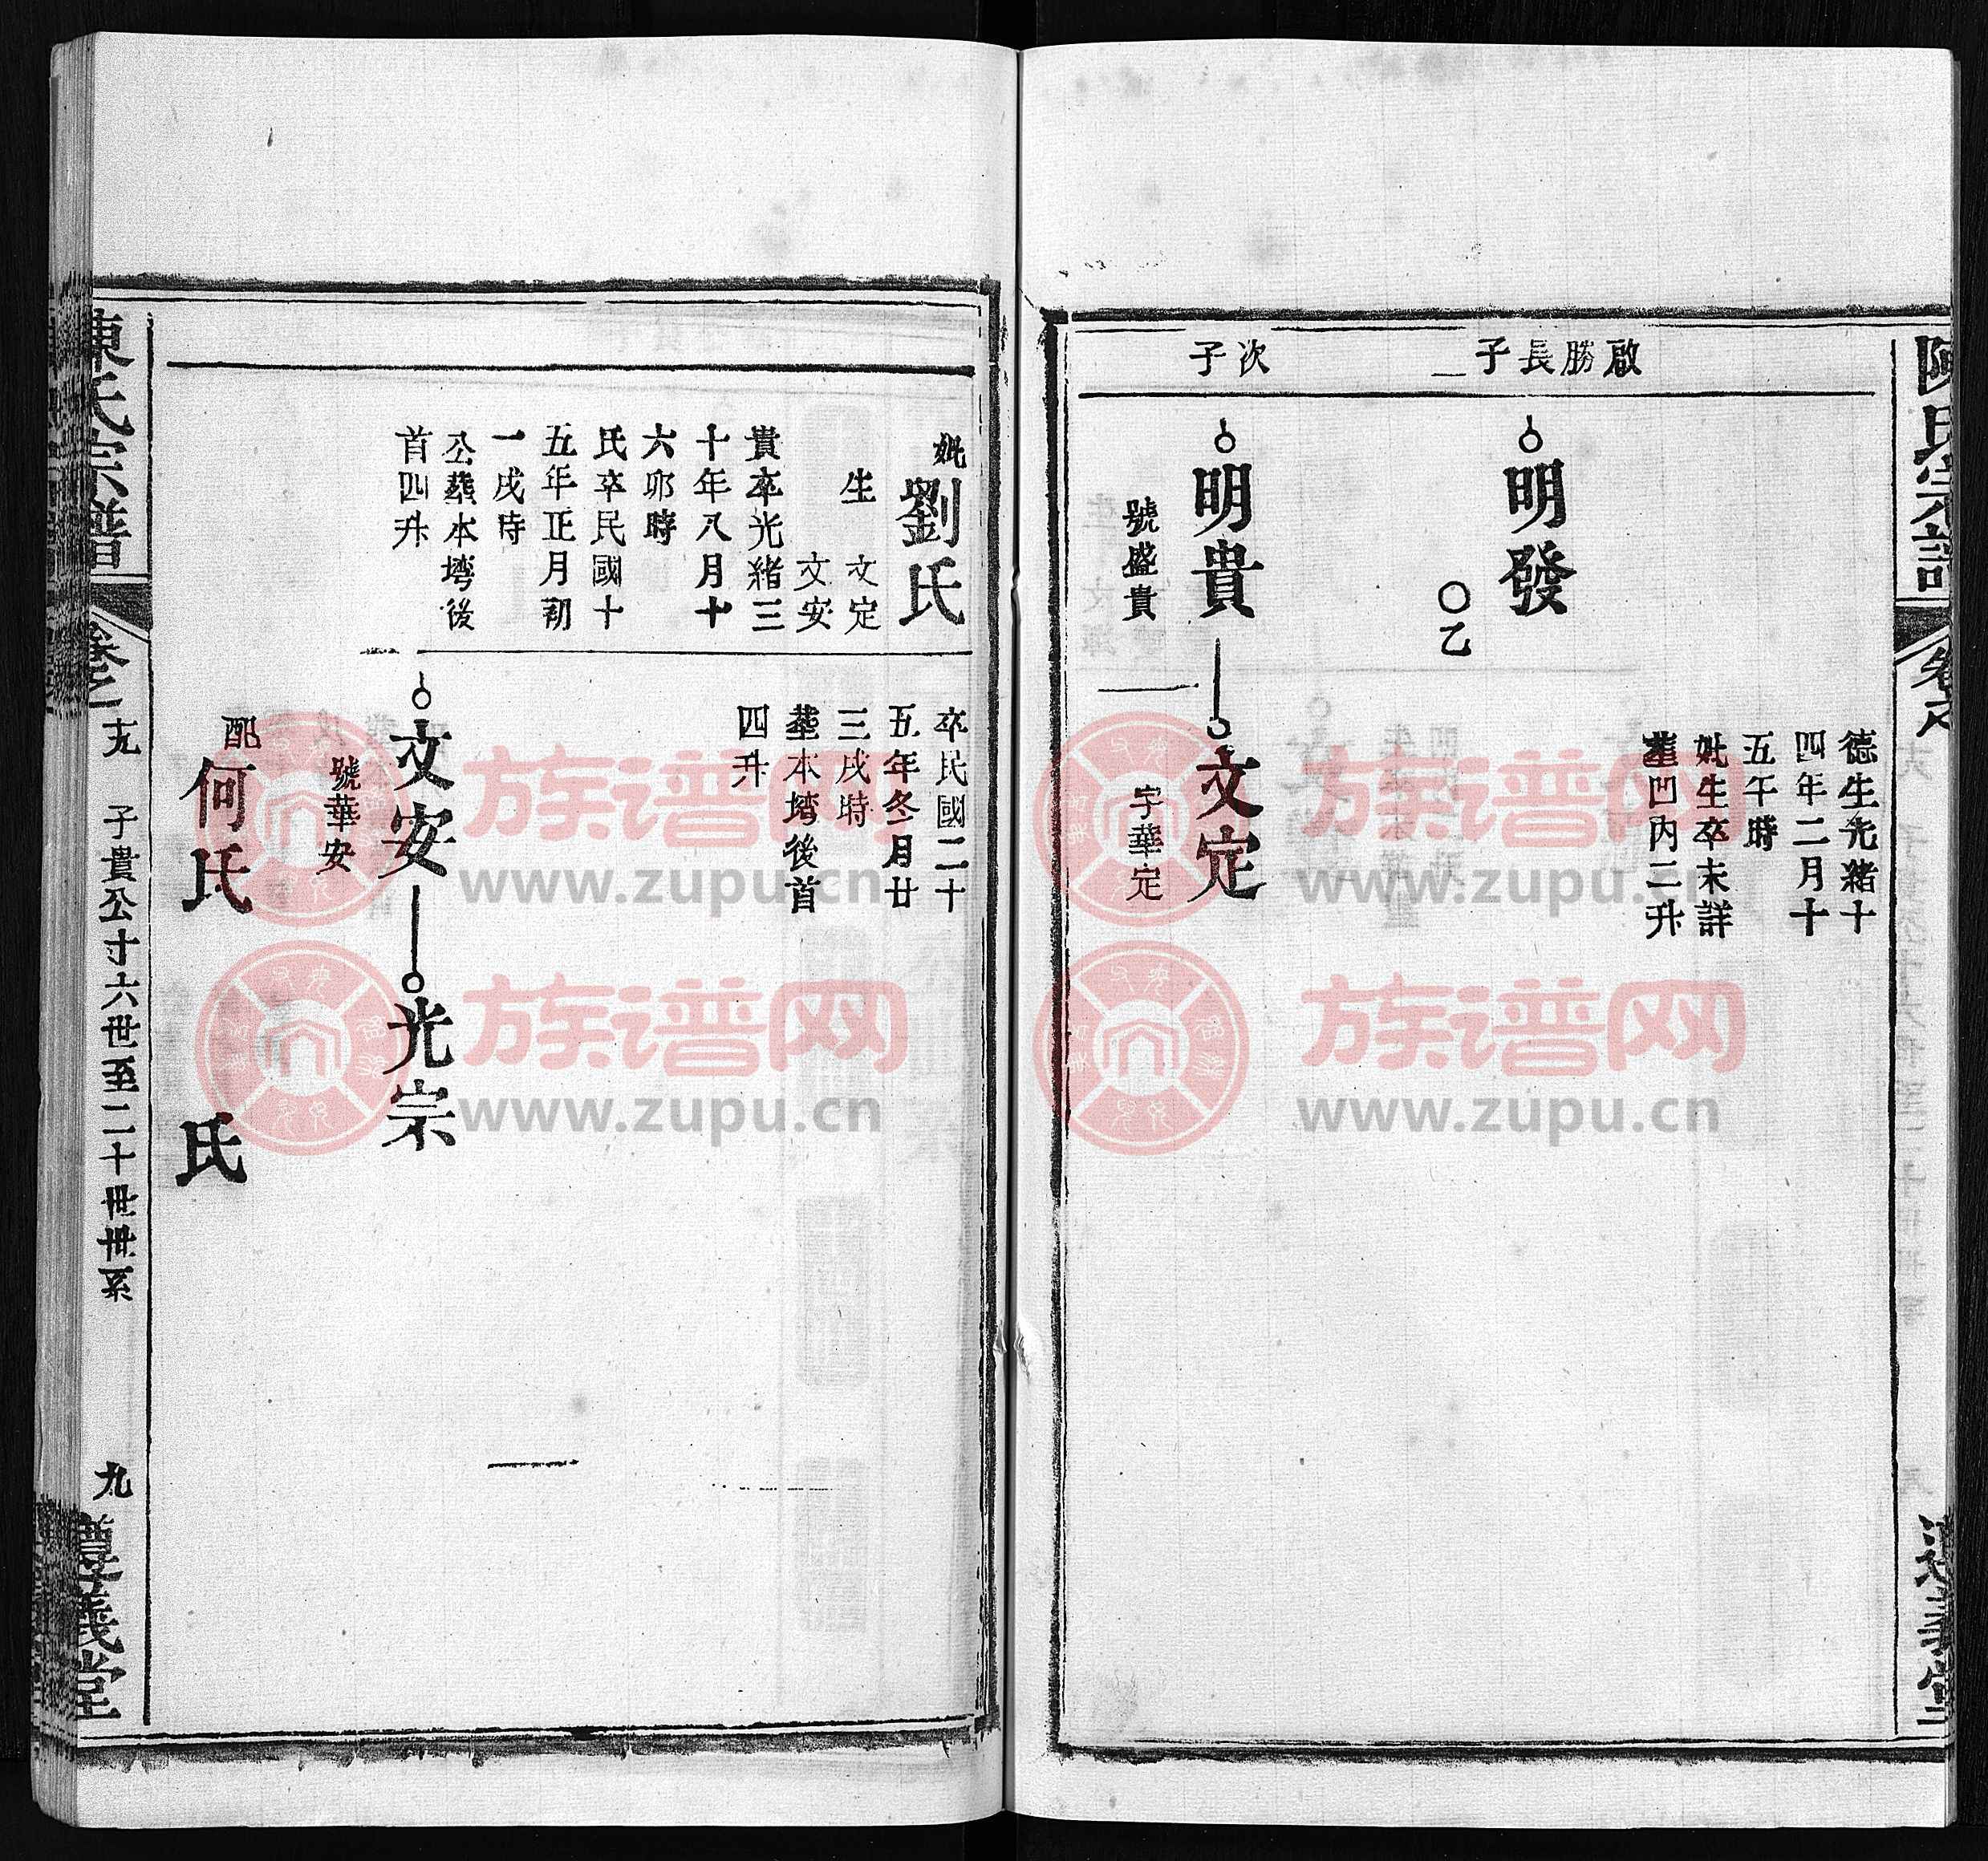 陳氏宗譜
啟勝長子
次子
德生光緒十
四年二月十
五午時
妣生卒未詳
塟凹內二升
明發
〇乙
明貴
號盛貴
文定
字華定
妣
劉氏
生
文定
文安
貴卒光緒三
十年八月十
六卯時
氏卒民國十
五年正月初
一戌時
公塟本塆後
首四升
卒民國二十
五年冬月廿
三戌時
塟本塆後首
四升
文安
號華安
光宗
配
何氏
氏
陳氏宗譜
子貴公十六世至二十世世系
九
遵義堂
族谱网
www.zupu.cn
族谱网
www.zupu.cn
族谱网
www.zupu.cn
族谱网
www.zupu.cn